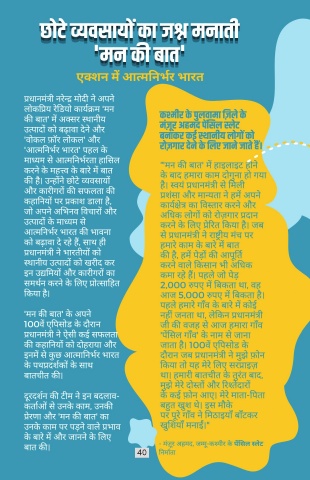 छोटे व्यवसायों का जश्न मनाती
'मन की बात'
एक्शन में आत्मनिर्भर भारत
प्रधानमंत्री नरेन्द्र मोदी ने अपने
लोकप्रिय रेडियो कार्यक्रम 'मन
की बात' में अक्सर स्थानीय
उत्पादों को बढ़ावा देने और
'वोकल फ़ॉर लोकल' और
'आत्मनिर्भर भारत' पहल के
माध्यम से आत्मनिर्भरता हासिल
करने के महत्त्व के बारे में बात
की है। उन्होंने छोटे व्यवसायों
और कारीगरों की सफलता की
कहानियों पर प्रकाश डाला है,
जो अपने अभिनव विचारों और
उत्पादों के माध्यम से
आत्मनिर्भर भारत की भावना
को बढ़ावा दे रहे हैं, साथ ही
प्रधानमंत्री ने भारतीयों को
स्थानीय उत्पादों को खरीद कर
इन उद्यमियों और कारीगरों का
समर्थन करने के लिए प्रोत्साहित
किया है।
'मन की बात' के अपने
100वें एपिसोड के दौरान
प्रधानमंत्री ने ऐसी कई सफलता
की कहानियों को दोहराया और
इनमें से कुछ आत्मनिर्भर भारत
के पथप्रदर्शकों के साथ
बातचीत की।
दूरदर्शन की टीम ने इन बदलाव-
कर्ताओं से उनके काम, उनकी
प्रेरणा और 'मन की बात' का
उनके काम पर पड़ने वाले प्रभाव
के बारे में और जानने के लिए
बात की।
कश्मीर के पुलवामा ज़िले के
मंज़ूर अहमद पेंसिल स्लेट
बनाकर कई स्थानीय लोगों को
रोज़गार देने के लिए जाने जाते हैं।
"'मन की बात' में हाइलाइट होने
के बाद हमारा काम दोगुना हो गया
है। स्वयं प्रधानमंत्री से मिली
प्रशंसा और मान्यता ने हमें अपने
कार्यक्षेत्र का विस्तार करने और
अधिक लोगों को रोज़गार प्रदान
करने के लिए प्रेरित किया है। जब
से प्रधानमंत्री ने राष्ट्रीय मंच पर
हमारे काम के बारे में बात
की है, हमें पेड़ों की आपूर्ति
करने वाले किसान भी अधिक
कमा रहे हैं। पहले जो पेड़
2,000 रुपए में बिकता था, वह
आज 5,000 रुपए में बिकता है।
पहले हमारे गाँव के बारे में कोई
नहीं जनता था, लेकिन प्रधानमंत्री
जी की वजह से आज हमारा गाँव
'पेंसिल गाँव' के नाम से जाना
जाता है। 100वें एपिसोड के
दौरान जब प्रधानमंत्री ने मुझे फ़ोन
किया तो यह मेरे लिए सरप्राइज़
था। हमारी बातचीत के तुरंत बाद,
मुझे मेरे दोस्तों और रिश्तेदारों
के कई फ़ोन आए। मेरे माता-पिता
बहुत खुश थे। इस मौके
पर पूरे गाँव ने मिठाइयाँ बाँटकर
खुशियाँ मनाईं।"
- मंज़ूर अहमद, जम्मू-कश्मीर के पेंसिल स्लेट
निर्माता
40